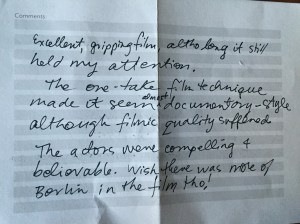 Comments
Excellent, gripping film, altho long it still
held my attention.
The one-take film technique
made it seem almost documentary-style
although filmic quality suffered
The actors were compelling &
believable. Wish there was more of
Berlin in the film tho!